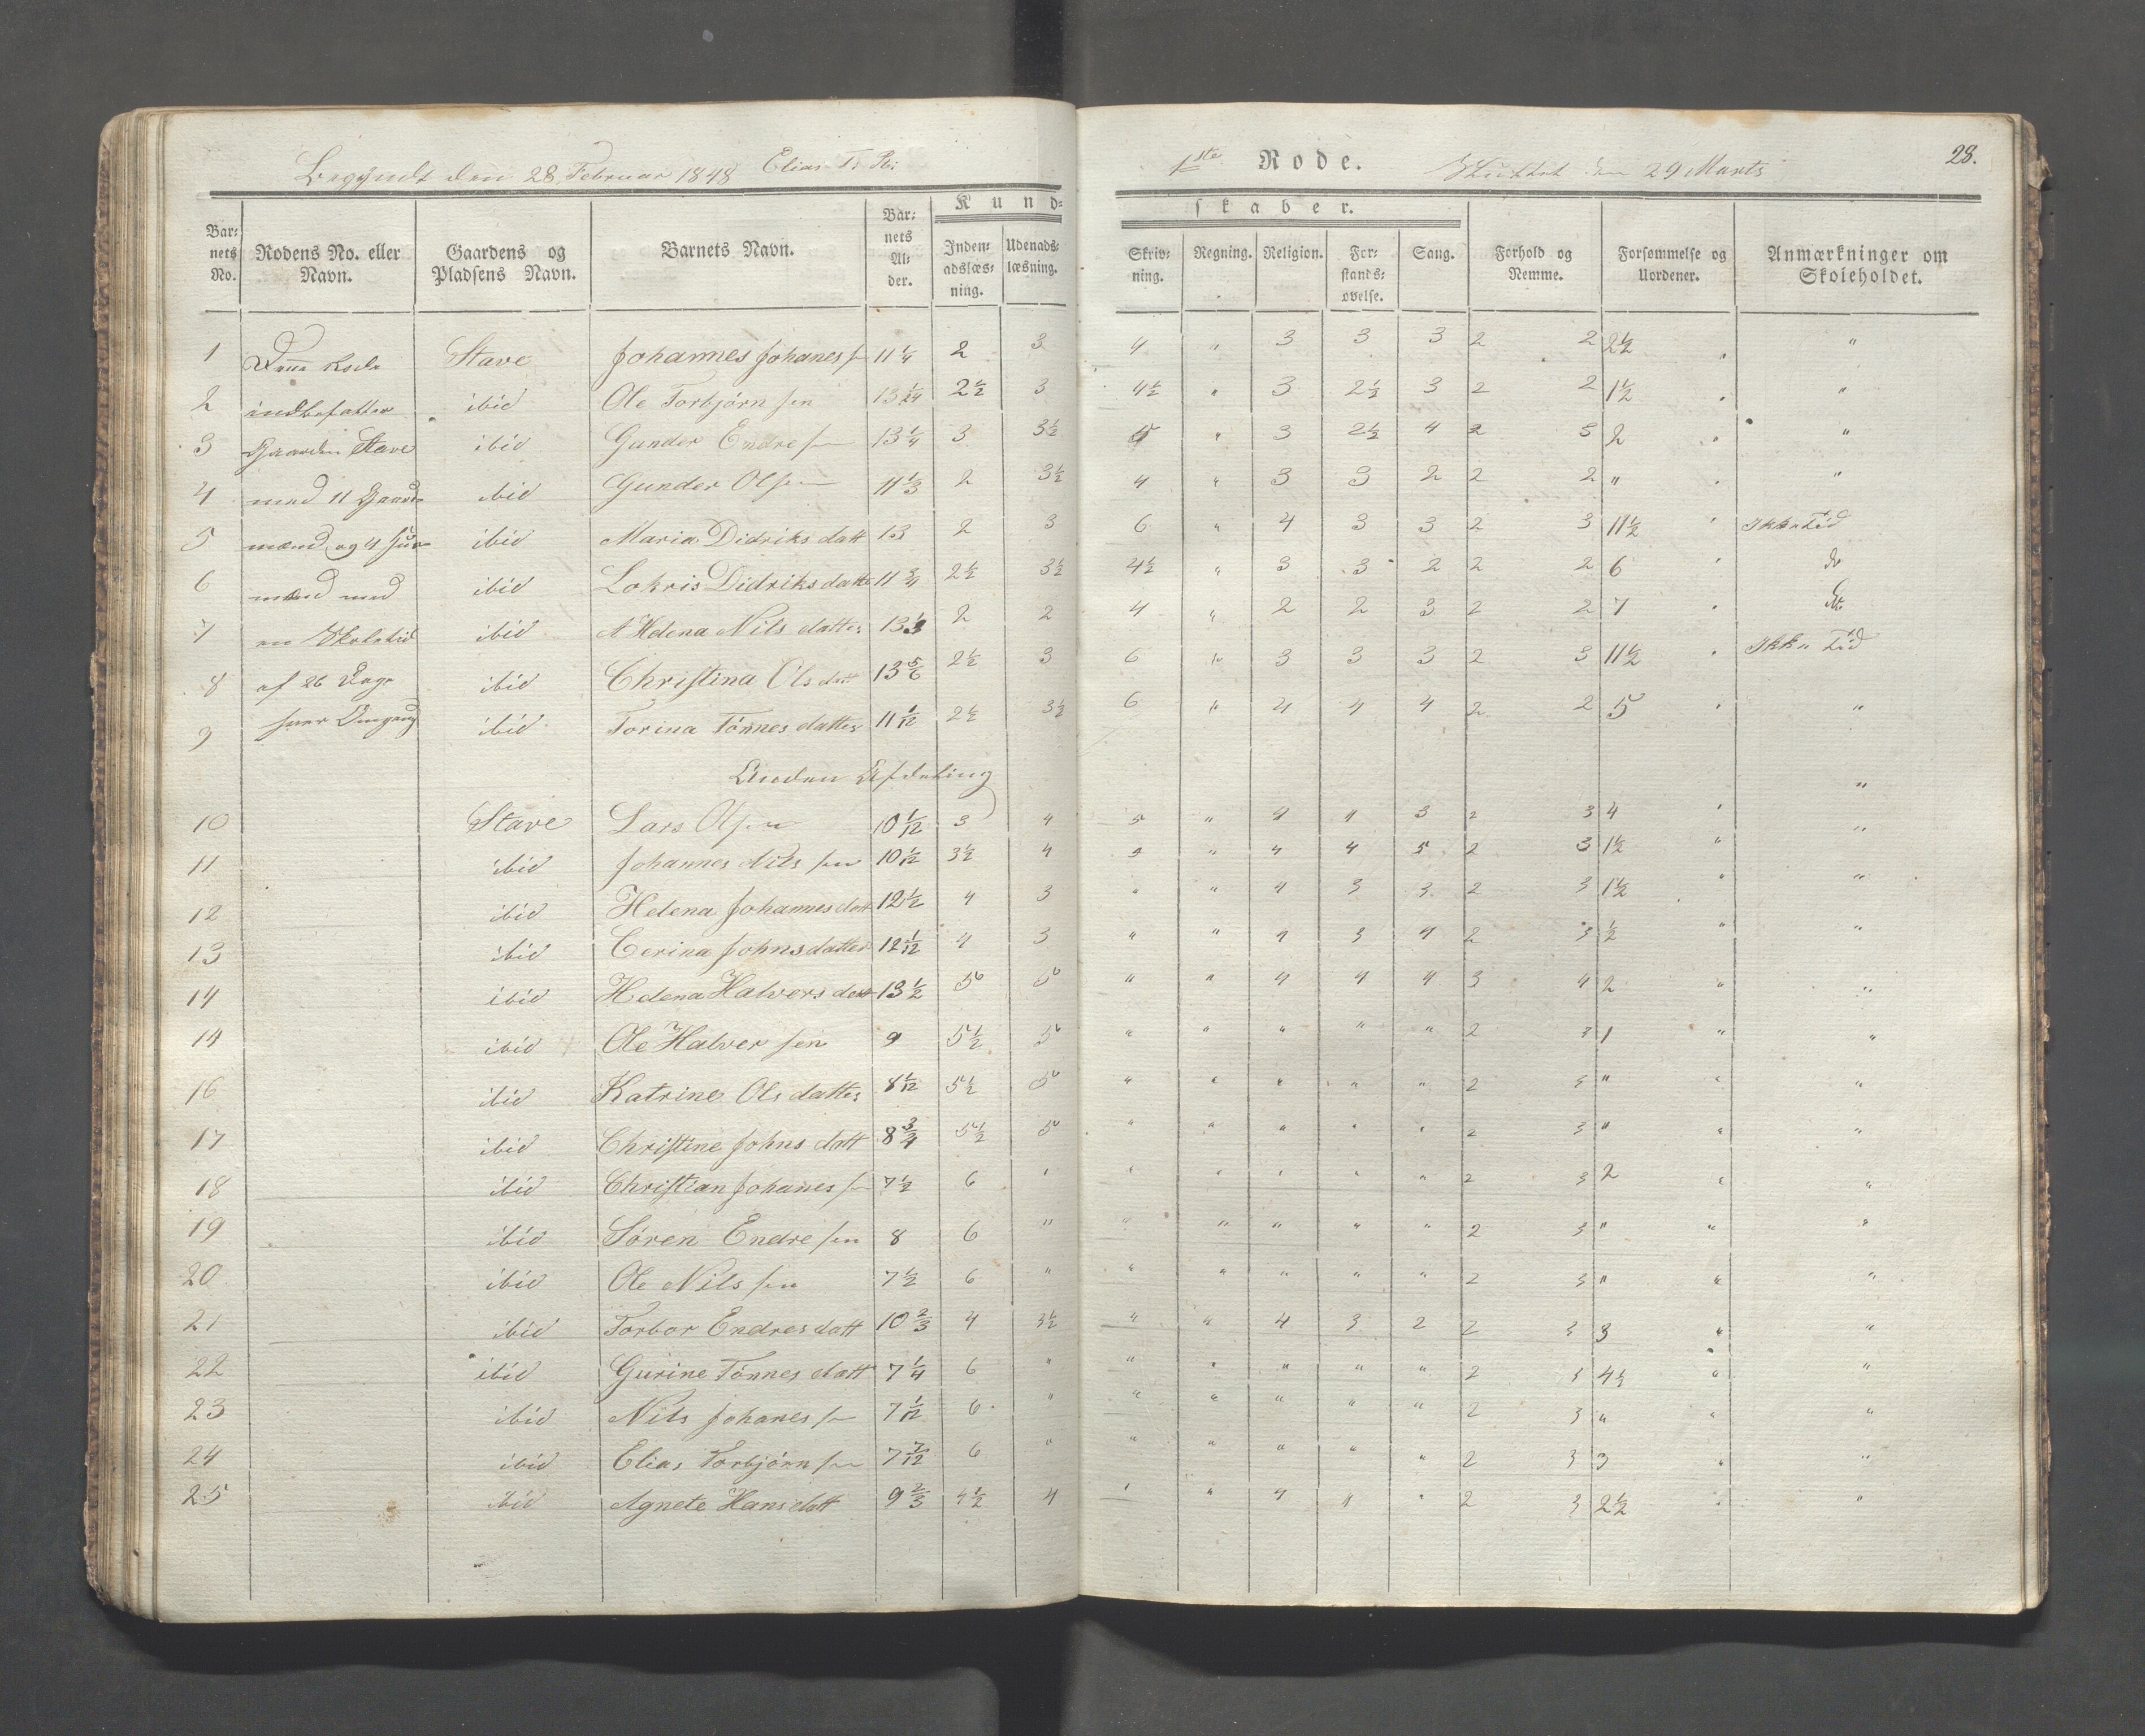 Begyndt den 28 Februar 1848 Elias Ts.
1ste Rode. Sluttet den 29 Marts 28.
Kundskaber.
Barnets No. | Rodens No. eller Navn. | Gaardens og Pladsens Navn. | Barnets Navn. | Barnets Alder. | Indenadslæsning. | Udenadslæsning. | Skrivning. | Regning. | Religion. | Forstandsøvelse. | Sang. | Forhold og Nemme. | Forsømmelse og Uordener. | Anmærkninger om Skoleholdet.
1 Denne Rode Stave Johannes Johanes sen 11 1/4 2 3 4 " 3 3 3 2 2 2 1/2 " "
2 indbefatter ibid Ole Torbjörn sen 13 1/24 2 1/2 3 4 1/2 " 3 2 1/2 3 2 2 1 1/2 " "
3 Gaarden Stave ibid Gunder Endre sen 13 1/4 3 3 1/2 5 " 3 2 1/2 4 2 5 2 " "
4 med 11 Gaard- ibid Gunder Olsen 11 1/3 2 3 1/2 4 " 3 3 2 2 2 " " "
5 mænd og 4 Huus- ibid Maria Didriks datt 13 2 3 6 " 4 3 3 2 3 11 1/2 " Ikke Tid
6 mænd med ibid Lokris Didriksdatte 11 3/4 2 1/2 3 1/2 4 1/2 " 3 3 2 2 2 6 " do
7 en Skoletid ibid A Helena Nils datter 13 1/3 2 2 4 " 2 2 3 2 2 7 " do
8 af 26 Dage ibid Christina Ols datt 13 5/6 2 1/2 3 6 " 3 3 3 2 3 11 1/2 " Ikke Tid
9 hver Omgang ibid Torina Tönnes datter 11 1/12 2 1/2 3 1/2 6 " 4 4 4 2 2 5 " "
Anden Afdeling "
10 Stave Lars Olsen 10 1/12 3 4 5 " 4 4 3 2 3 4 " "
11 ibid Johannes Nils sen 10 1/12 3 1/2 4 5 " 4 4 5 2 3 1 1/2 " "
12 ibid Helena Johannes datt 12 1/2 4 3 " " 4 3 3 2 3 1 1/2 " "
13 ibid Cerina Johnsdatter 12 1/12 4 3 " " 4 3 4 2 3 1/2 " "
14 ibid Helena Halvers datt 13 1/2 5 5 " " 4 4 4 3 4 2 " "
14 ibid Ole Halver sen 9 5 1/2 5 " " " " " 2 3 1 " "
16 ibid Katrine Ols datter 8 1/12 5 1/2 5 " " " " " 2 3 " " "
17 ibid Christine Johns datt 8 3/4 5 1/2 5 " " " " " 2 3 " " "
18 ibid Christian Johanes sen 7 1/2 6 " " " " " " 2 3 2 " "
19 ibid Sören Endre sen 8 6 " " " " " " 2 3 " " "
20 ibid Ole Nils sen 7 1/2 6 " " " " " " 2 3 " " "
21 ibid Torbor Endres datt 10 2/3 4 3 1/2 " " 4 3 2 2 3 3 " "
22 ibid Gurine Tönnes datt 7 1/4 6 " " " " " " 2 3 4 1/2 " "
23 ibid Nils Johanes sen 7 1/12 6 " " " " " " 2 3 " " "
24 ibid Elias Torbjörn sen 7 7/12 6 " " " " " " 2 3 3 " "
25 ibid Agnete Hans datt 9 2/3 4 1/2 4 " " 4 4 " 2 3 2 1/2 " "